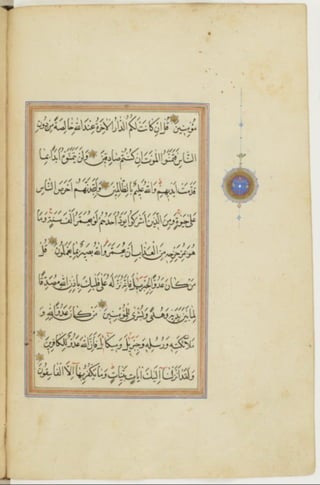 مُؤْمِنِينَ قُلْ إِن كَانَتْ لَكُمُ الدَّارُ الْآخِرَةُ عِندَ اللَّهِ خَالِصَةً مِن دُونِ
النَّاسِ فَتَمَنَّوُا الْمَوْتَ إِن كُنتُمْ صَادِقِينَ وَلَن يَتَمَنَّوْهُ أَبَدًا بِمَا
قَدَّمَتْ أَيْدِيهِمْ وَاللَّهُ عَلِيمٌ بِالظَّالِمِينَ وَلَتَجِدَنَّهُمْ أَحْرَصَ النَّاسِ
عَلَىٰ حَيَوٰةٍ وَمِنَ الَّذِينَ أَشْرَكُوا يَوَدُّ أَحَدُهُمْ لَوْ يُعَمَّرُ أَلْفَ سَنَةٍ وَمَا
هُوَ بِمُزَحْزِحِهِ مِنَ الْعَذَابِ أَن يُعَمَّرَ وَاللَّهُ بَصِيرٌ بِمَا يَعْمَلُونَ قُلْ
مَن كَانَ عَدُوًّا لِجِبْرِيلَ فَإِنَّهُ نَزَّلَهُ عَلَىٰ قَلْبِكَ بِإِذْنِ اللَّهِ مُصَدِّقًا
لِمَا بَيْنَ يَدَيْهِ وَهُدًى وَبُشْرَىٰ لِلْمُؤْمِنِينَ مَن كَانَ عَدُوًّا لِلَّهِ وَ
مَلَائِكَتِهِ وَرُسُلِهِ وَجِبْرِيلَ وَمِيكَالَ فَإِنَّ اللَّهَ عَدُوٌّ لِلْكَافِرِينَ
وَلَقَدْ أَنزَلْنَا إِلَيْكَ آيَاتٍ بَيِّنَاتٍ وَمَا يَكْفُرُ بِهَا إِلَّا الْفَاسِقُونَ